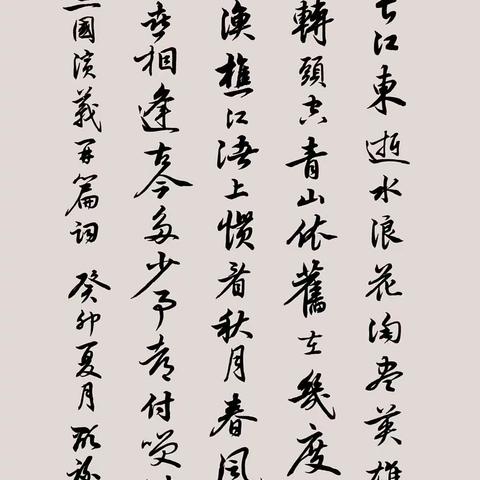 长江東逝水浪花淘尽英雄
轉頭空青山依舊在幾度
漁樵江渚上慣看秋月春風
喜相逢古今多少事都付笑
三國演義开篇词 癸卯夏月